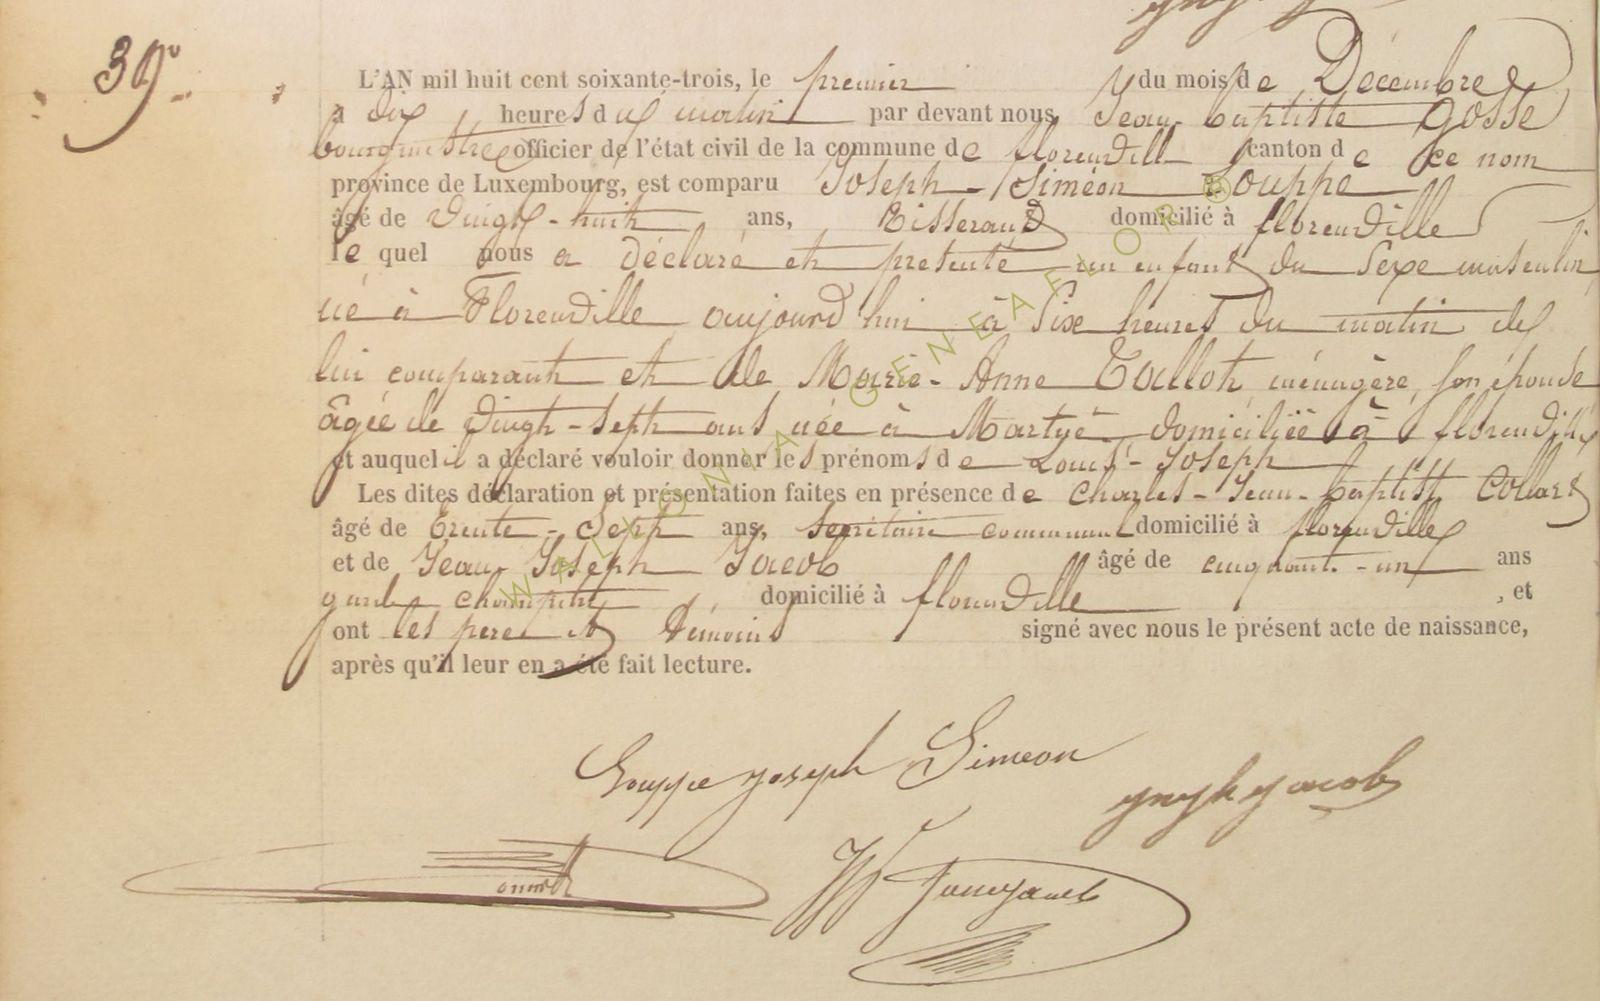 39º
L'AN mil huit cent soixante-trois, le premier du mois de Décembre
a dix heures du matin par devant nous Jean-baptiste Gosse
bourgmestre officier de l'état civil de la commune de florenville canton de ce nom
province de Luxembourg, est comparu Joseph-Siméon Gouppe
âgé de vingt-huit ans, tisserand domicilié à florenville
le quel nous a déclaré et présenté un enfant du sexe masculin
né à Florenville aujourd'hui à six heures du matin de
lui comparant et de Marie-Anne Tallot, ménagère, son épouse
âgée de vingt-sept ans née à Martué domiciliée à florenville
et auquel il a déclaré vouloir donner les prénoms de Louis-Joseph
Les dites déclaration et présentation faites en présence de Charles-Jean-baptiste Collard
âgé de trente-sept ans, secrétaire communal domicilié à florenville
et de Jean Joseph Jacob âgé de cinquante-un ans
garde champêtre domicilié à florenville , et
ont les père et témoins signé avec nous le présent acte de naissance,
après qu'il leur en a été fait lecture.
Gouppe joseph Siméon
jacob
WALLONIA GENEAFLOR ©